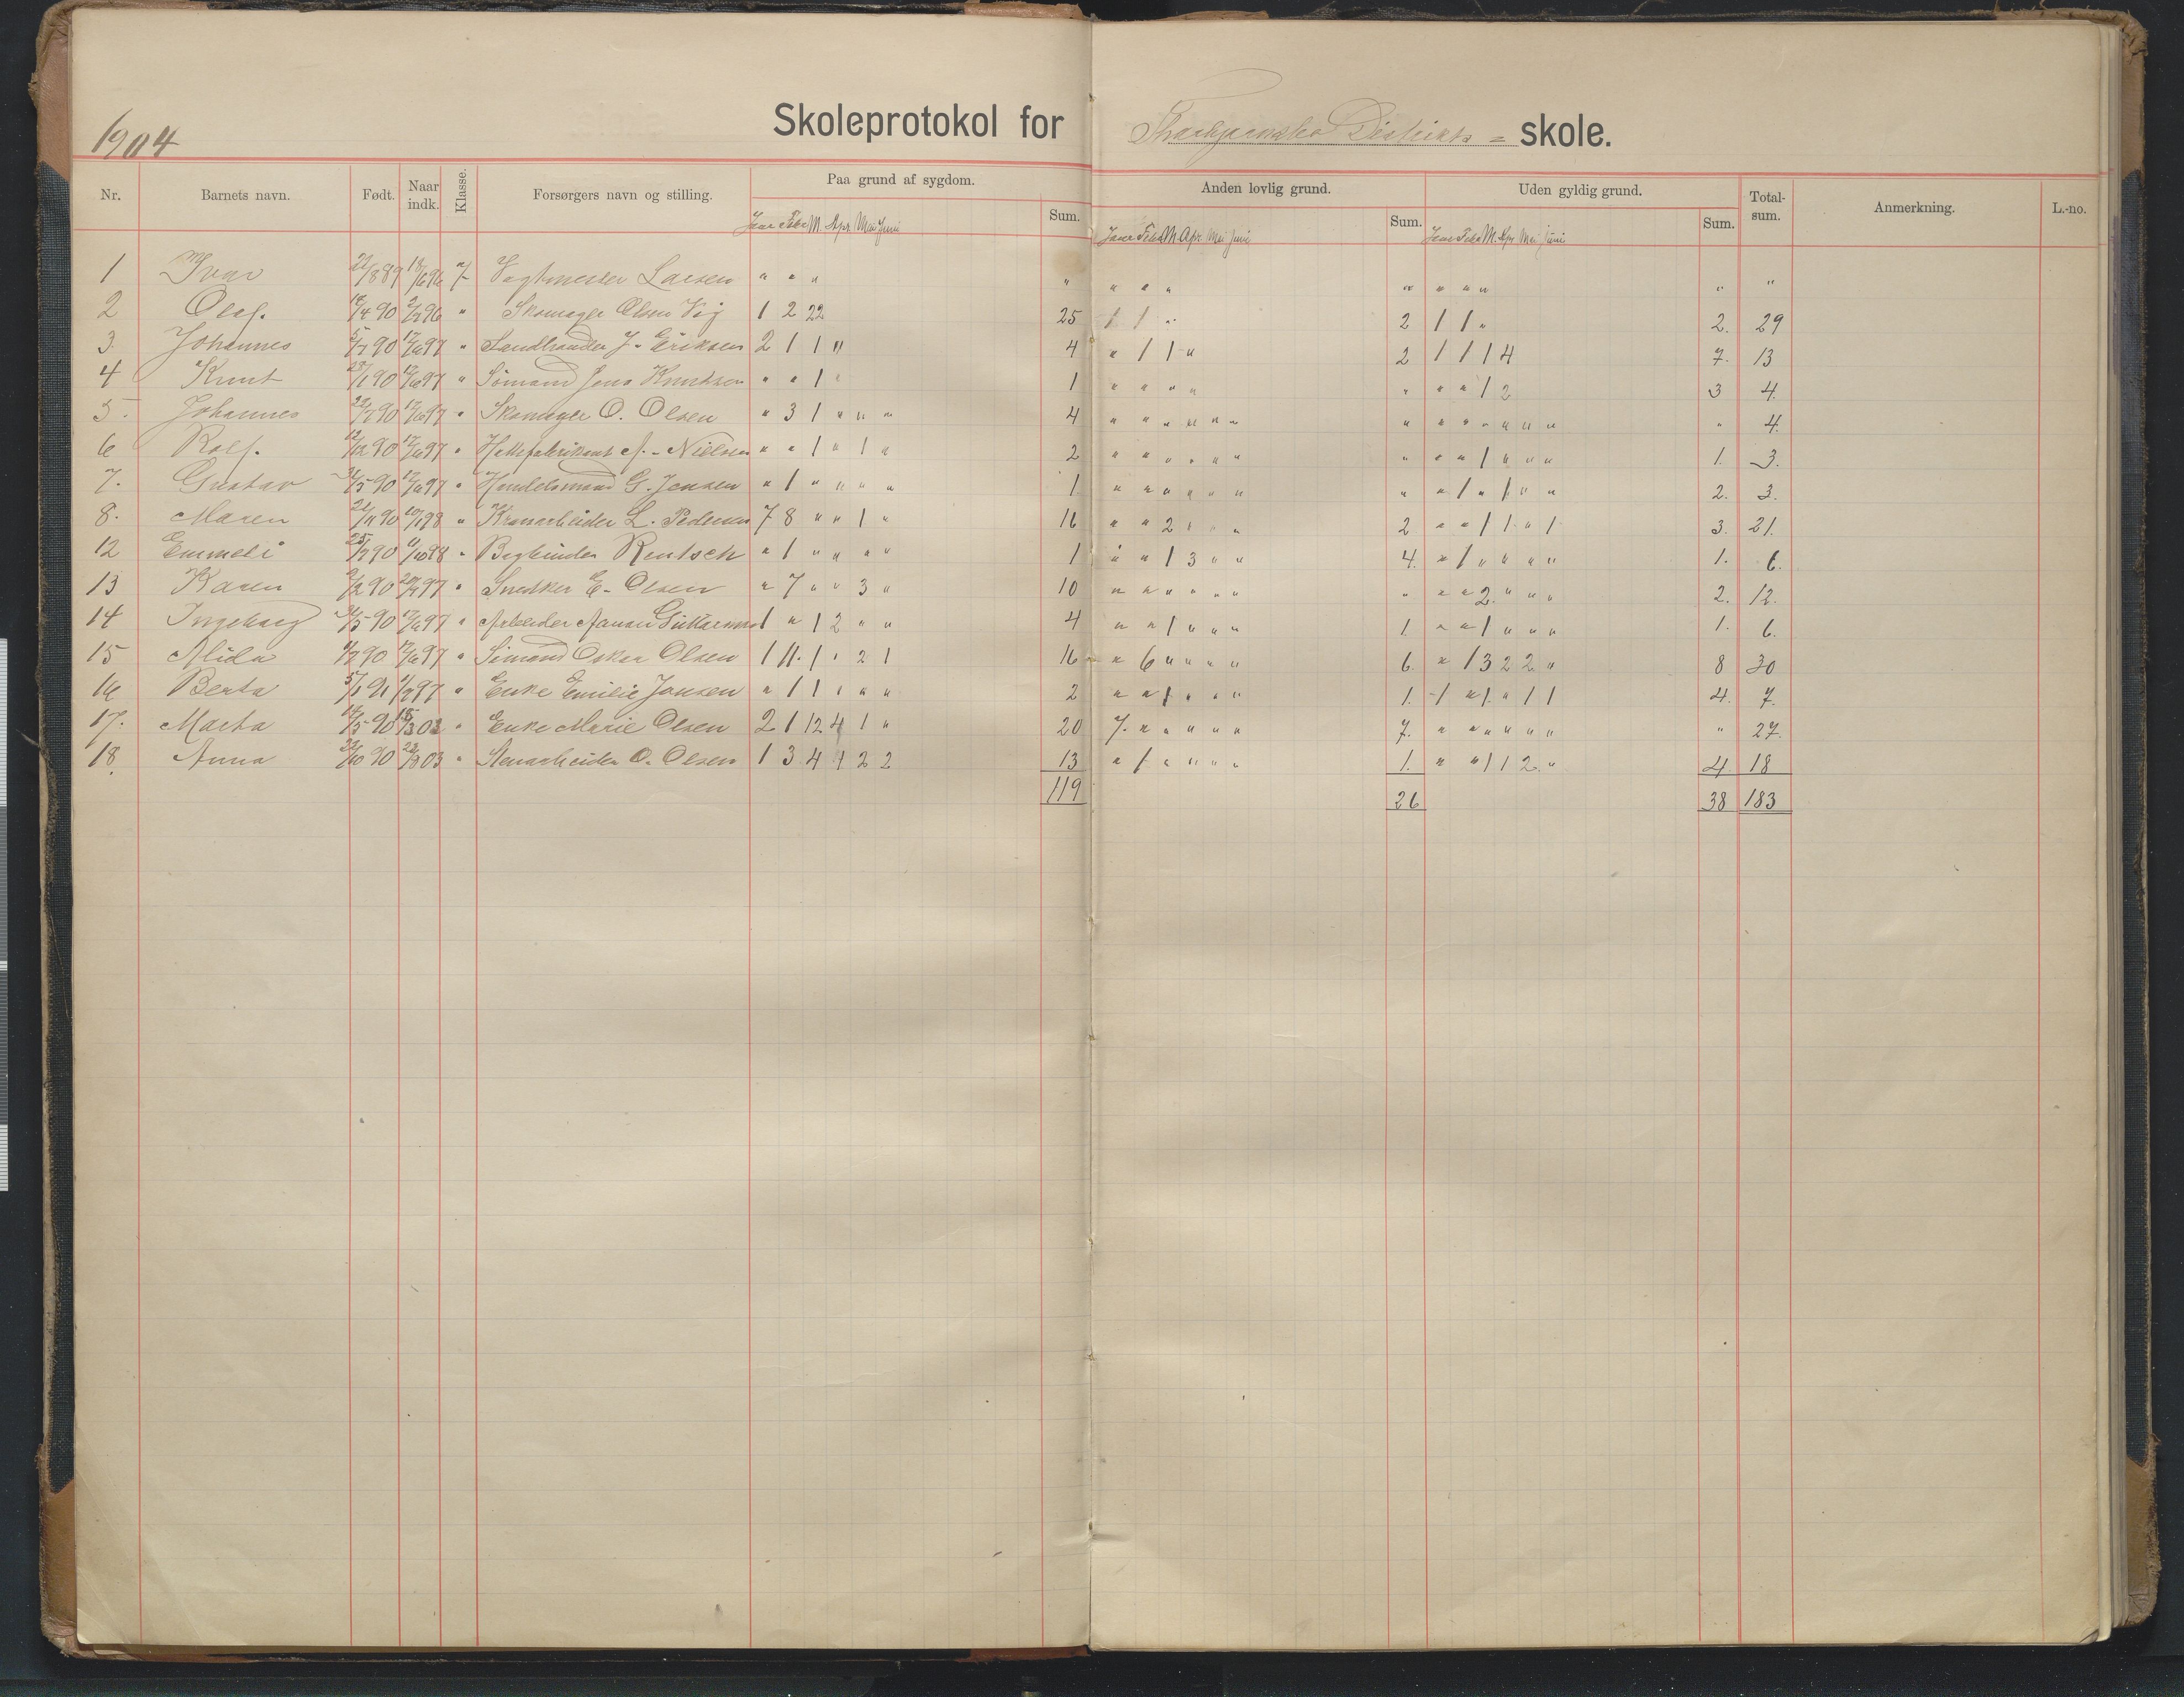 1904
Skoleprotokol for Distrikts = skole.
Nr. Barnets navn. Født. Naar indk. Klasse. Forsørgers navn og stilling. Paa grund af sygdom. Sum. Anden lovlig grund. Sum. Uden gyldig grund. Sum. Total-sum. Anmerkning. L.-no.
Janr Febr M. Apr Mai Juni Janr Febr M. Apr Mai Juni Janr Febr M. Apr Mai Juni
1 Ivar 22/8 89 18/6 96 7 Vagtmester Larsen " " " " " " " " " " " " "
2 Olaf. 18/4 90 2/7 96 " Skomager Olsen Vig 1 2 22 25 1 1 " 2 1 1 " 2. 29
3. Johannes 5/7 90 17/6 97 " Landhandler J. Eriksen 2 1 1 " 4 " 1 1 " 2 1 1 1 4 7. 13
4 Knut 28/1 90 17/6 97 " Sömand Jens Knutsen " " 1 " 1 " " " " " " " 1 2 3 4.
5. Johannes 22/7 90 17/6 97 " Skomager O. Olsen " 3 1 " " " 4 " " " " " " " " " " " " " " 4.
6 Rolf. 12/12 90 17/6 97 " Hattefabrikant A. Nielsen " " 1 " 1 " 2 " " " " " " " " " 1 " " " 1. 3.
7. Gustav 31/5 90 17/6 97 " Handelsmand G. Jensen " 1 " " " " 1 " " " " " " " " 1 " 1 " " 2. 3.
8. Maren 21/11 90 10/1 98 " Kranarbeider L. Pedersen 7 8 " " 1 " 16 " " 2 " " " 2 " " 1 1 " 1 3. 21.
12 Emmeli 25/7 90 11/10 98 " Bogbinder Rentsch " 1 " " " " 1 " " 1 3 " " 4. " 1 " " " " 1. 6.
13 Karen 2/2 90 20/4 97 " Snedker E. Olsen " 7 " " 3 " 10 " " " " " " " " " 2. " " " 2. 12.
14 Ingeborg 31/5 90 17/6 97 " Arbeider 1 " 1 2 " " 4 " " 1 " " " 1. " " 1 " " " 1. 6.
15 Alida 90 17/6 97 " Sömand Oskar Olsen 1 11. 1 " 2 1 16 " 6 " " " " 6. " 1 3 2 2 " 8 30
16 Berta 5/1 91 97 " Enke Emilie Jansen " 1 1 " " " 2 " " 1 " " " 1. 1 " 1. " 1 1 4. 7.
17. Marta 14/5 90 18/3 03 " Enke Marie Olsen 2 1 12 4 1 " 20 7. " " " " " 7. " " " " " " " 27.
18. Anna 22/10 90 22/8 03 " Stenarbeider O. Olsen 1 3 4 1 2 2 13 " 1 " " " " 1. " " 1 1 2. " 4. 18
119 26 38 183